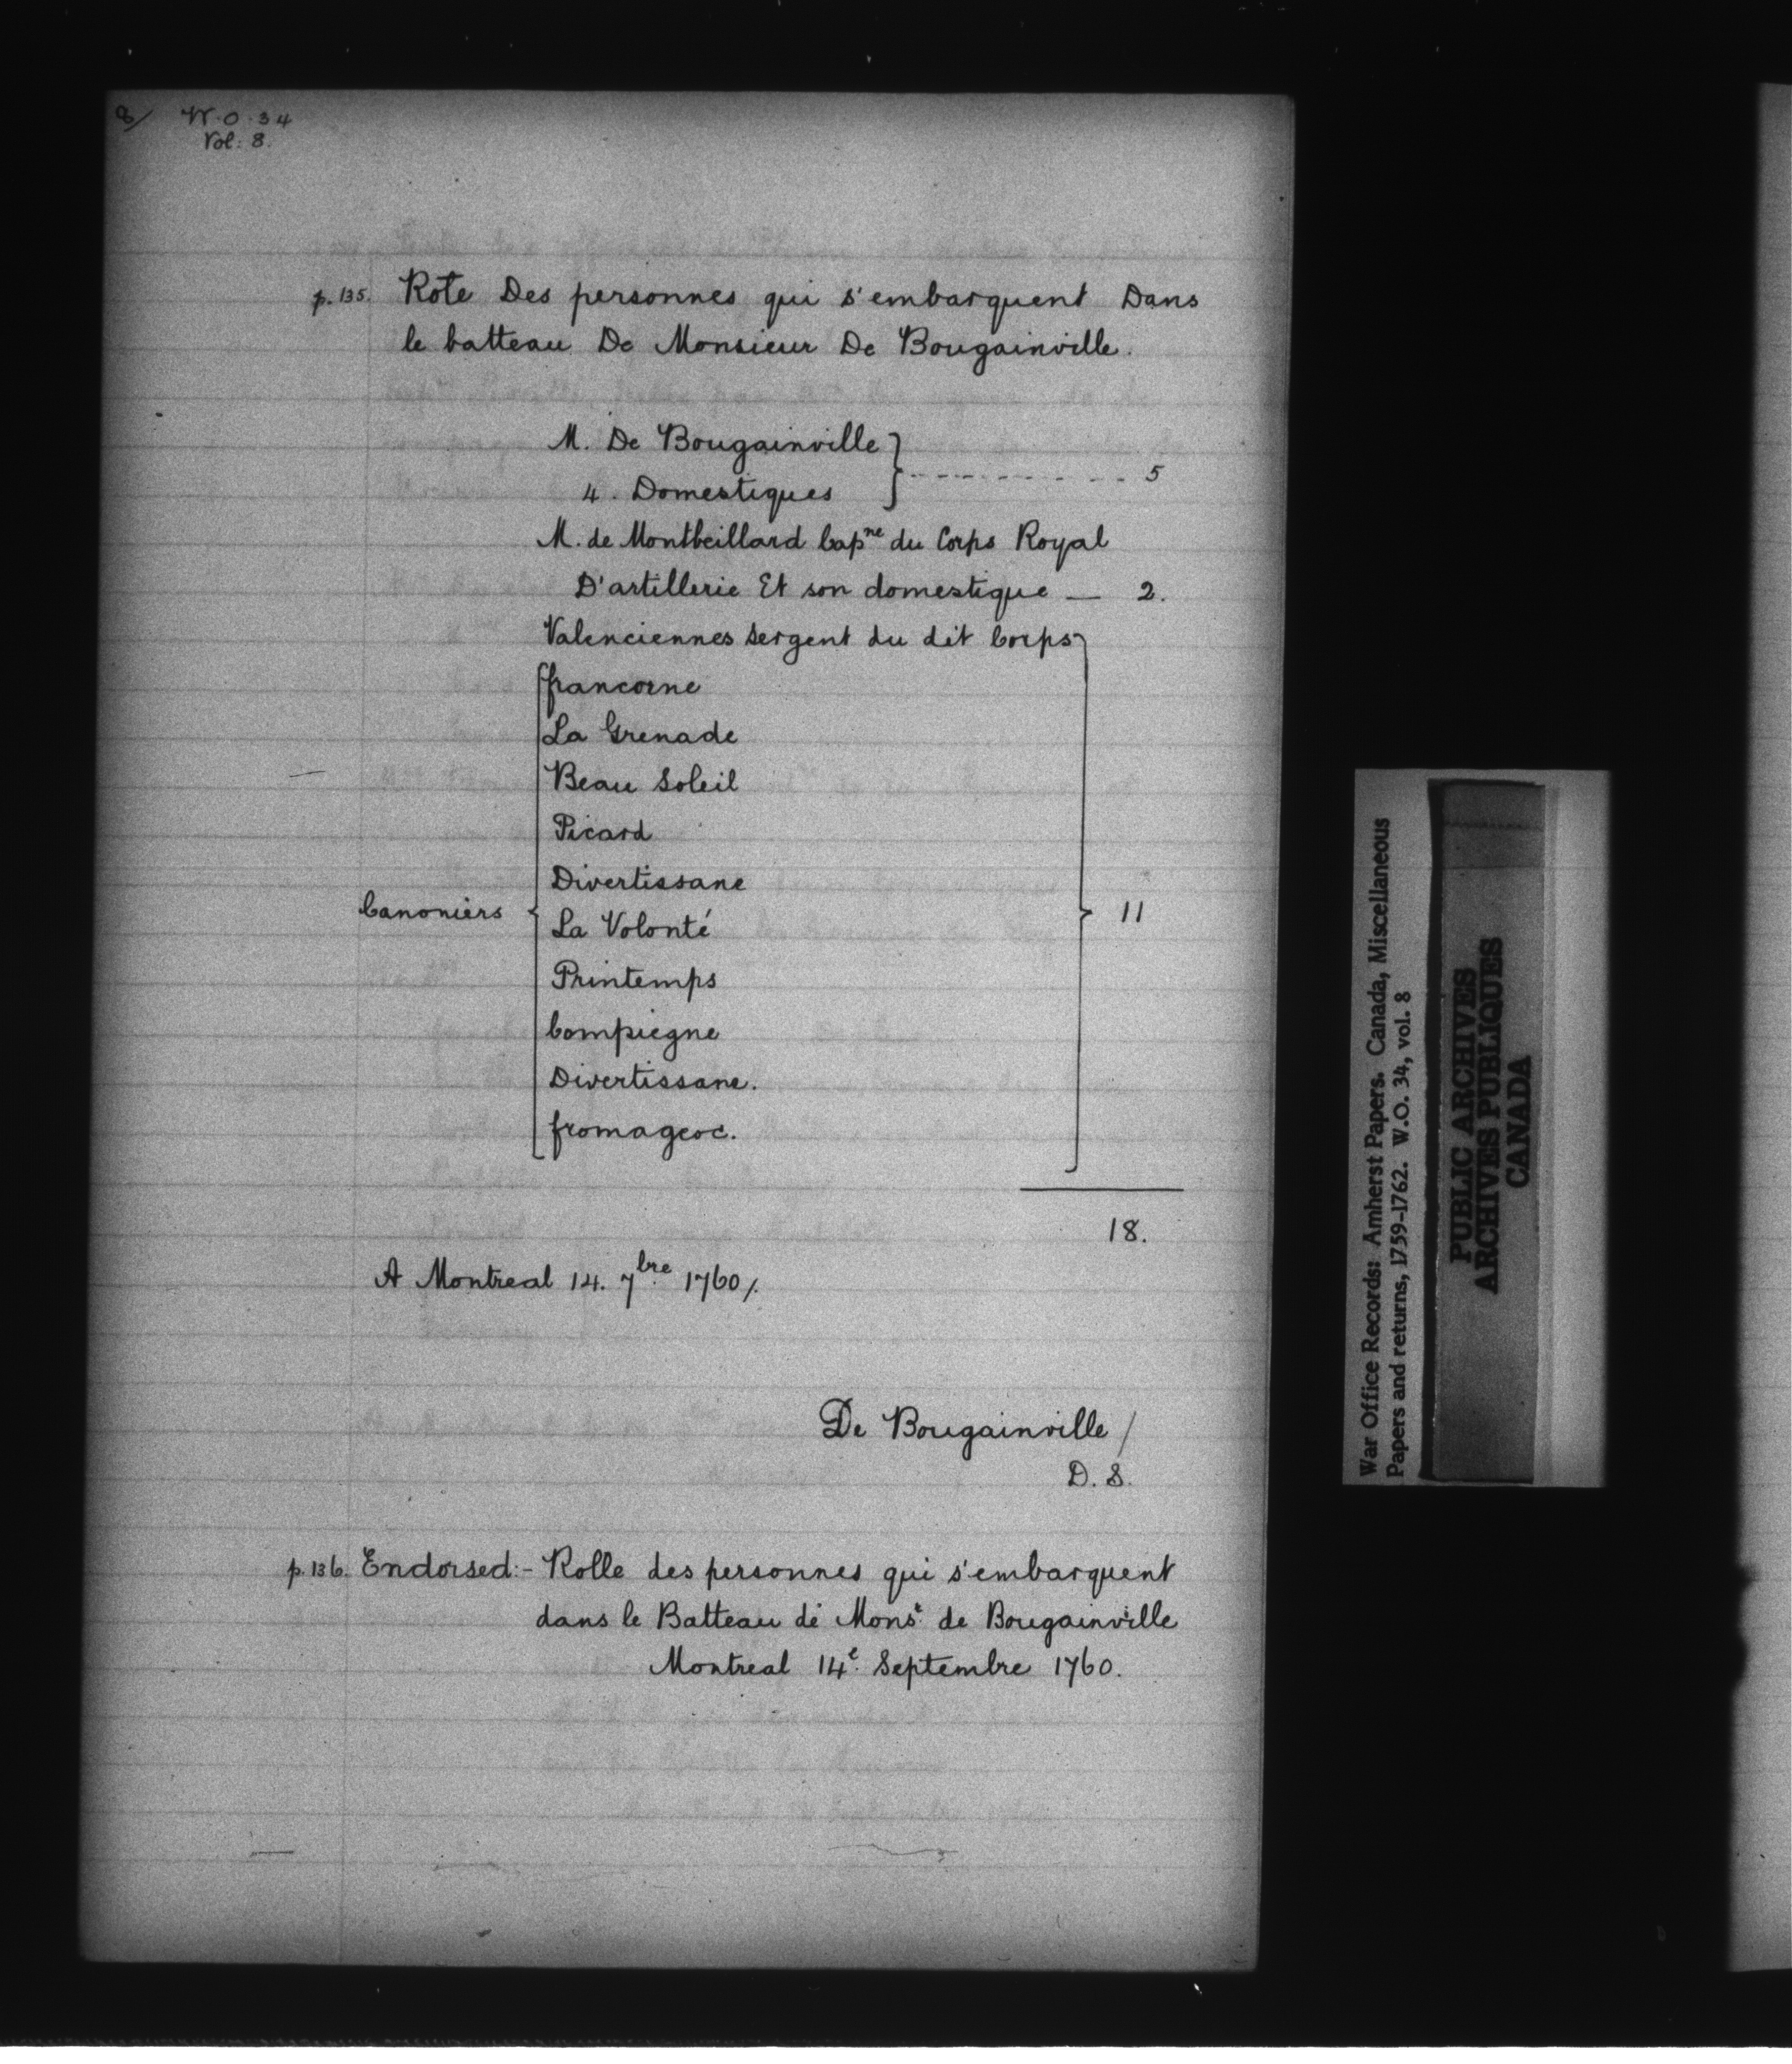 8/ W.O.34
Vol: 8.
p. 135. Rote Des personnes qui s'embarquent Dans
le batteau De Monsieur De Bougainville.
M. De Bougainville
4. Domestiques } - - - - - - - - - 5
M. de Montbeillard Capne du Corps Royal
D'artillerie Et son domestique — 2.
Valenciennes Sergent du dit Corps
francorne
La Grenade
Beau Soleil
Picard
Divertissane
Canoniers { La Volonté } 11
Printemps
Compiegne
Divertissane.
fromageoc.
18.
A Montreal 14. 7bre 1760/.
De Bougainville /
D. S.
p. 136. Endorsed:- Rolle des personnes qui s'embarquent
dans le Batteau de Monsr de Bougainville
Montreal 14e Septembre 1760.
War Office Records: Amherst Papers. Canada, Miscellaneous
Papers and returns, 1759-1762. W.O. 34, vol. 8
PUBLIC ARCHIVES
ARCHIVES PUBLIQUES
CANADA